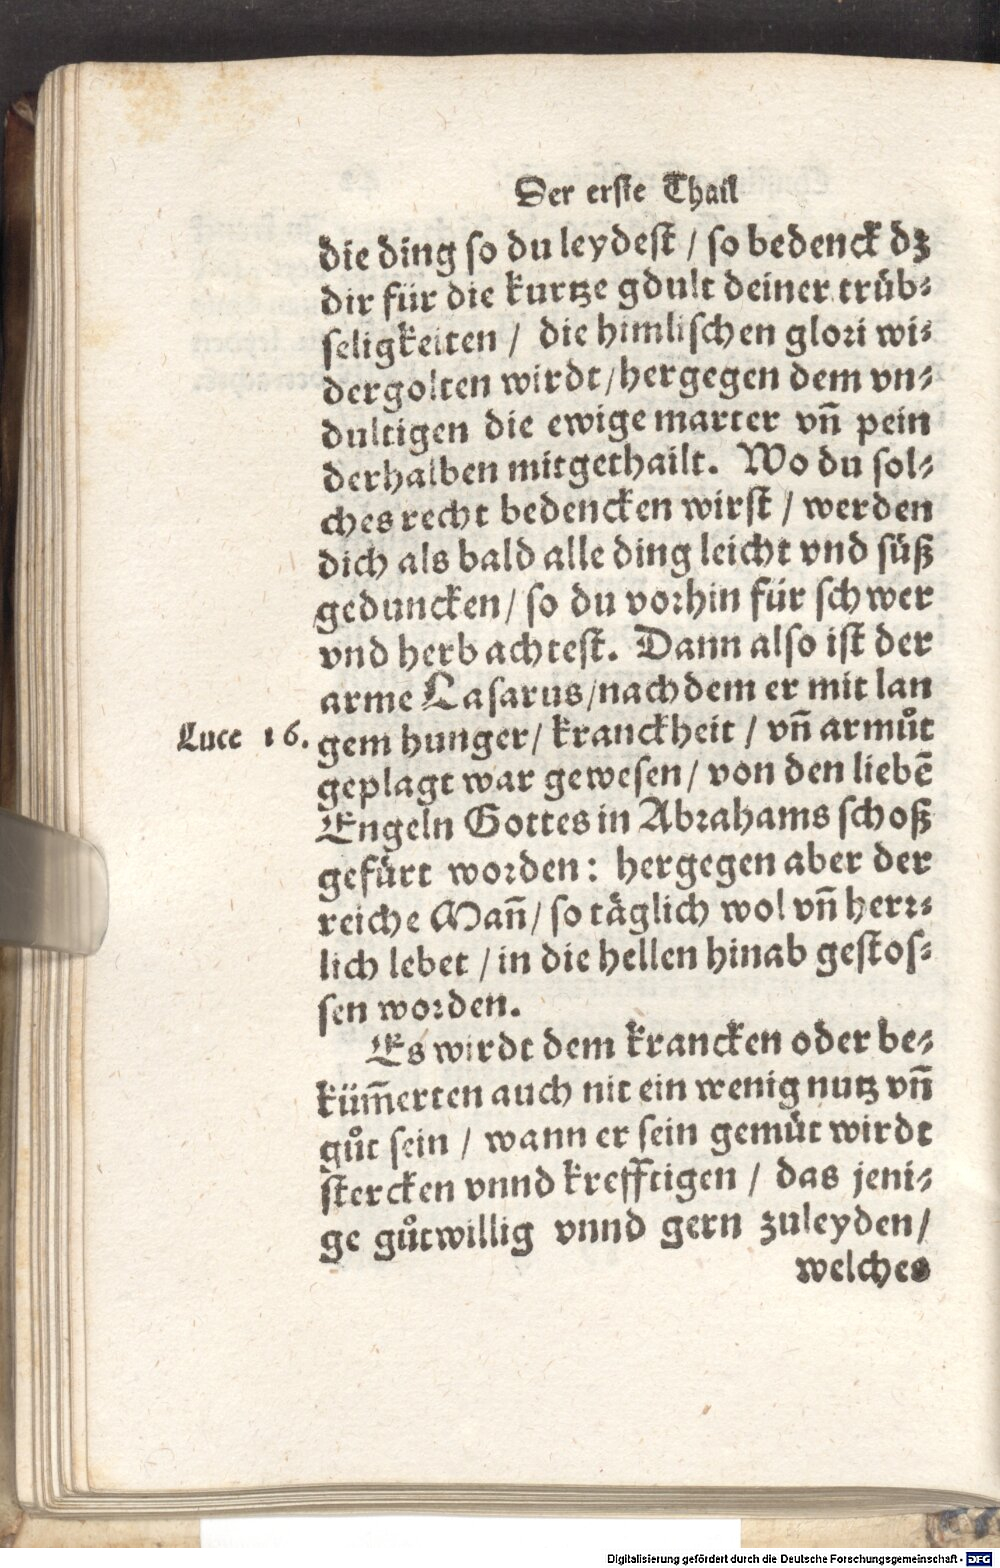 Der erste Thail
die ding so du leydest / so bedenck dz
dir für die kurtze gdult deiner trüb⸗
seligkeiten / die himlischen glori wi⸗
dergolten wirdt / hergegen dem vn⸗
dultigen die ewige marter vñ pein
derhalben mitgethailt. Wo du sol⸗
ches recht bedencken wirst / werden
dich als bald alle ding leicht vnd süß
geduncken / so du vorhin für schwer
vnd herb achtest. Dann also ist der
arme Lasarus / nachdem er mit lan
Luce 16.
gem hunger / kranckheit / vñ armůt
geplagt war gewesen / von den liebē
Engeln Gottes in Abrahams schoß
gefürt worden: hergegen aber der
reiche Mañ / so täglich wol vñ herr⸗
lich lebet / in die hellen hinab gestos⸗
sen worden.
Es wirdt dem krancken oder be⸗
küm̃erten auch nit ein wenig nutz vñ
gůt sein / wann er sein gemüt wirdt
stercken vnnd krefftigen / das jeni⸗
ge gůtwillig vnnd gern zuleyden /
welches
Digitalisierung gefördert durch die Deutsche Forschungsgemeinschaft - DFG